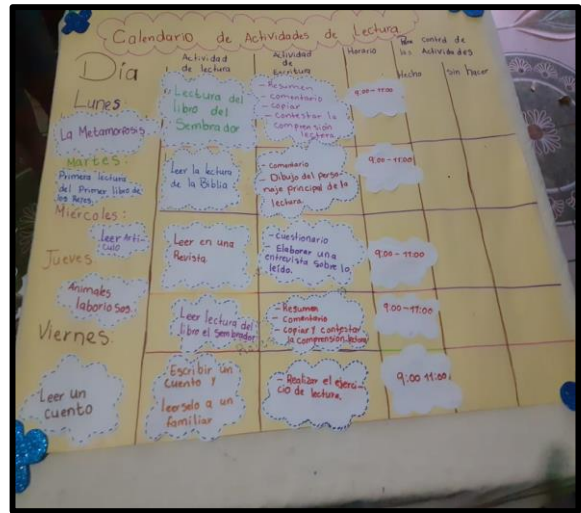 Calendario de Actividades de Lectura
Día
Actividad de lectura
Actividad de Escritura
Horario
Para control de las Actividades
Hecho
Sin hacer
Lunes
La Metamorfosis
Lectura del libro del Sembrador
- Resumen
- comentario
- copiar
- Contestar la comprensión lectora.
9:00 - 11:00
Martes:
Primera lectura del Primer libro de los Reyes.
Leer la lectura de la Biblia
- Comentario
- Dibujo del personaje principal de la lectura.
9:00 - 11:00
Miércoles:
Leer Artículo
Leer en una Revista.
- Cuestionario
- Elaborar una entrevista sobre lo leído.
9:00 - 11:00
Jueves
Animales laboriosos.
Leer lectura del libro el Sembrador
- Resumen
- Comentario
- copiar y contestar la comprensión lectora
9:00 - 11:00
Viernes:
Leer un cuento
Escribir un Cuento y leerselo a un familiar
- Realizar el ejercicio de lectura.
9:00 11:00